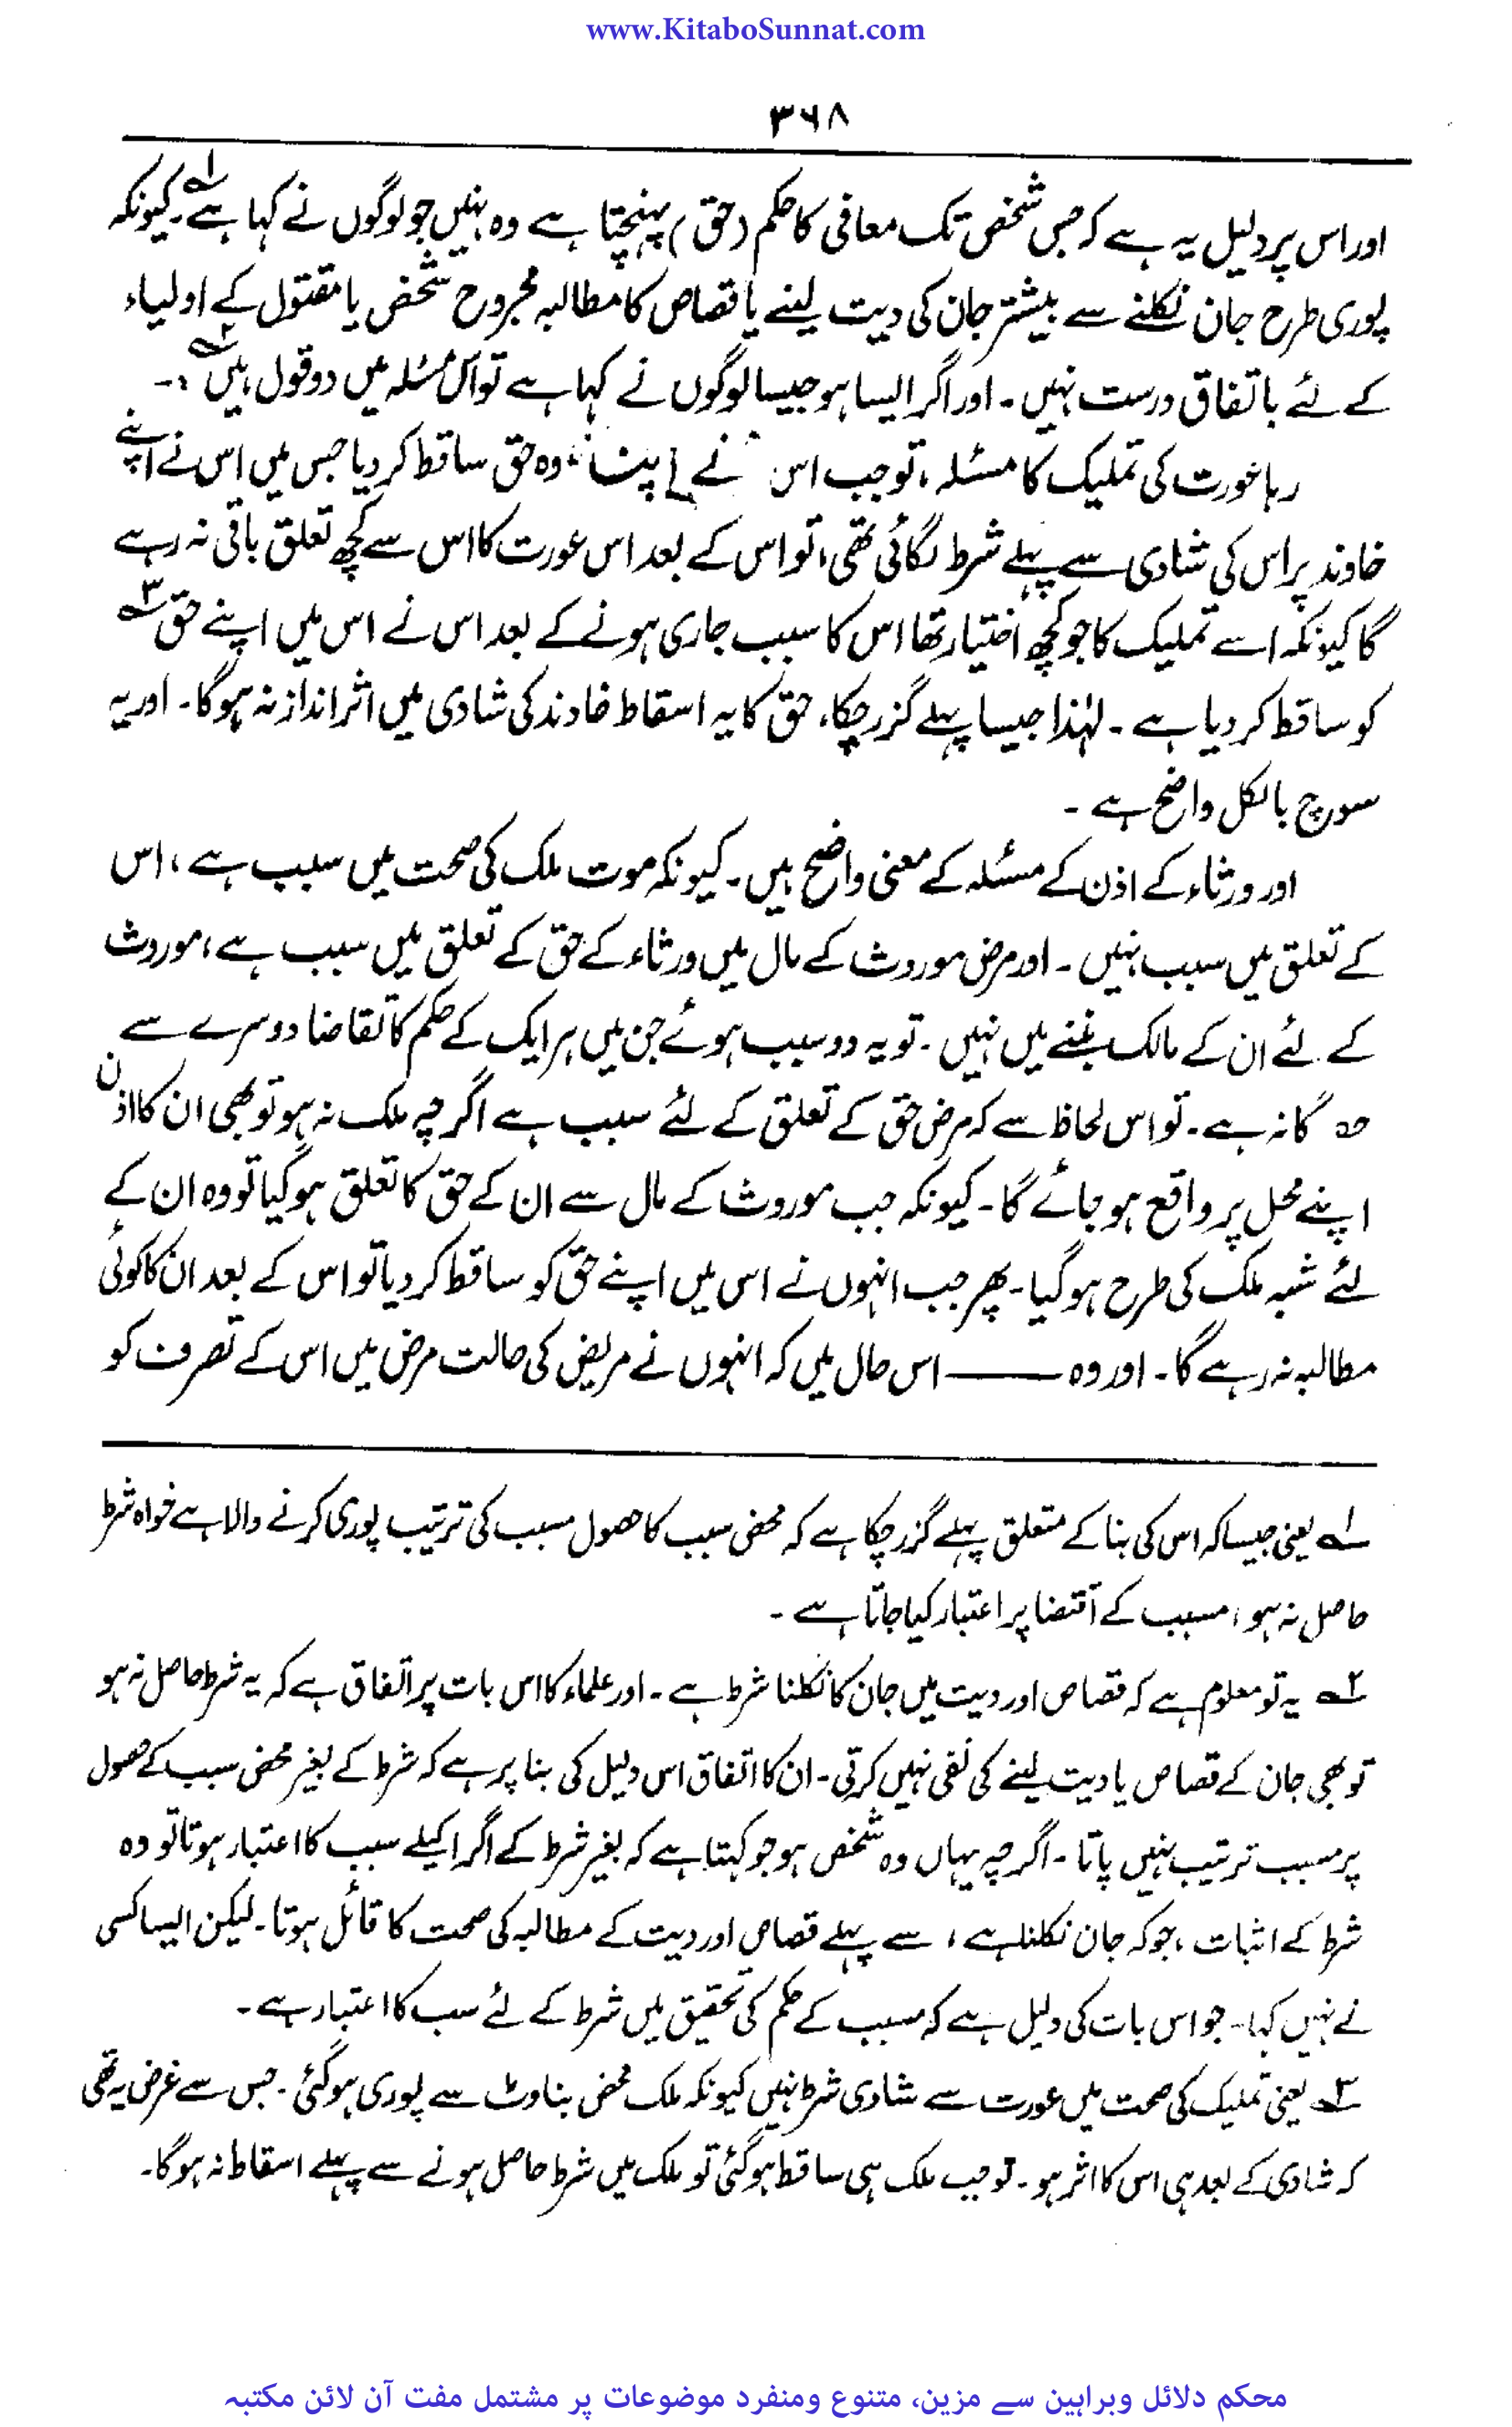 www.KitaboSunnat.com
۳۶۸
اور اس پر دلیل یہ ہے کہ جس شخص تک معافی کا حکم (حق) پہنچتا ہے وہ نہیں جو لوگوں نے کہا ہے۔ ۱؎ کیونکہ
پوری طرح جان نکلنے سے بیشتر جان کی دیت لینے یا قصاص کا مطالبہ مجروح شخص یا مقتول کے اولیاء
کے لئے باتفاق درست نہیں۔ اور اگر ایسا ہو جیسا لوگوں نے کہا ہے تو اس مسئلہ میں دو قول ہیں ۲؎ :۔
رہا عورت کی تملیک کا مسئلہ، تو جب اس نے اپنا وہ حق ساقط کر دیا جس میں اس نے اپنے
خاوند پر اس کی شادی سے پہلے شرط لگائی تھی، تو اس کے بعد اس عورت کا اس سے کچھ تعلق باقی نہ رہے
گا کیونکہ اسے تملیک کا جو کچھ اختیار تھا اس کا سبب جاری ہونے کے بعد اس نے اس میں اپنے حق ۳؎
کو ساقط کر دیا ہے۔ لہٰذا جیسا پہلے گزر چکا، حق کا یہ اسقاط خاوند کی شادی میں اثر انداز نہ ہوگا۔ اور یہ
سورچ بالکل واضح ہے ۔
اور ورثاء کے اذن کے مسئلہ کے معنی واضح ہیں۔ کیونکہ موت ملک کی صحت میں سبب ہے، اس
کے تعلق میں سبب نہیں۔ اور مرض موروث کے مال میں ورثاء کے حق کے تعلق میں سبب ہے، موروث
کے لئے ان کے مالک بننے میں نہیں۔ تو یہ دو سبب ہوئے جن میں ہر ایک کے حکم کا تقاضا دوسرے سے
جدا گانہ ہے۔ تو اس لحاظ سے کہ مرض حق کے تعلق کے لئے سبب ہے اگرچہ ملک نہ ہو تو بھی ان کا اذن
اپنے محل پر واقع ہو جائے گا۔ کیونکہ جب موروث کے مال سے ان کے حق کا تعلق ہو گیا تو وہ ان کے
لئے شبہ ملک کی طرح ہو گیا۔ پھر جب انہوں نے اس میں اپنے حق کو ساقط کر دیا تو اس کے بعد ان کا کوئی
مطالبہ نہ رہے گا۔ اور وہ ——— اس حال میں کہ انہوں نے مریض کی حالت مرض میں اس کے تصرف کو
۱؎ یعنی جیسا کہ اس کی بنا کے متعلق پہلے گزر چکا ہے کہ محض سبب کا حصول مسبب کی ترتیب پوری کرنے والا ہے خواہ شرط
حاصل نہ ہو، مسبب کے اقتضا پر اعتبار کیا جاتا ہے ۔
۲؎ یہ تو معلوم ہے کہ قصاص اور دیت میں جان کا نکلنا شرط ہے۔ اور علماء کا اس بات پر اتفاق ہے کہ یہ شرط حاصل نہ ہو
تو بھی جان کے قصاص یا دیت لینے کی نفی نہیں کرتی۔ ان کا اتفاق اس دلیل کی بنا پر ہے کہ شرط کے بغیر محض سبب کے حصول
پر مسبب ترتیب نہیں پاتا۔ اگرچہ یہاں وہ شخص ہو جو کہتا ہے کہ بغیر شرط کے اگر اکیلے سبب کا اعتبار ہوتا تو وہ
شرط کے اثبات، جو کہ جان نکلنا ہے، سے پہلے قصاص اور دیت کے مطالبہ کی صحت کا قائل ہوتا۔ لیکن ایسا کسی
نے نہیں کہا۔ جو اس بات کی دلیل ہے کہ مسبب کے حکم کی تحقیق میں شرط کے لئے سبب کا اعتبار ہے۔
۳؎ یعنی تملیک کی صحت میں عورت سے شادی شرط نہیں کیونکہ ملک محض بناوٹ سے پوری ہو گئی۔ جس سے غرض یہ تھی
کہ شادی کے بعد ہی اس کا اثر ہو۔ تو جب ملک ہی ساقط ہو گئی تو ملک میں شرط حاصل ہونے سے پہلے اسقاط نہ ہوگا۔
محکم دلائل وبراہین سے مزین، متنوع ومنفرد موضوعات پر مشتمل مفت آن لائن مکتبہ